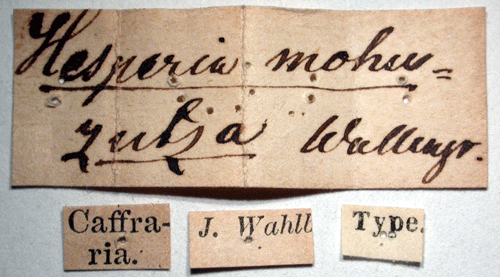 Hesperia mohw=
zutza Wallengr.
Caffra-
ria.
J. Wahlb
Type.